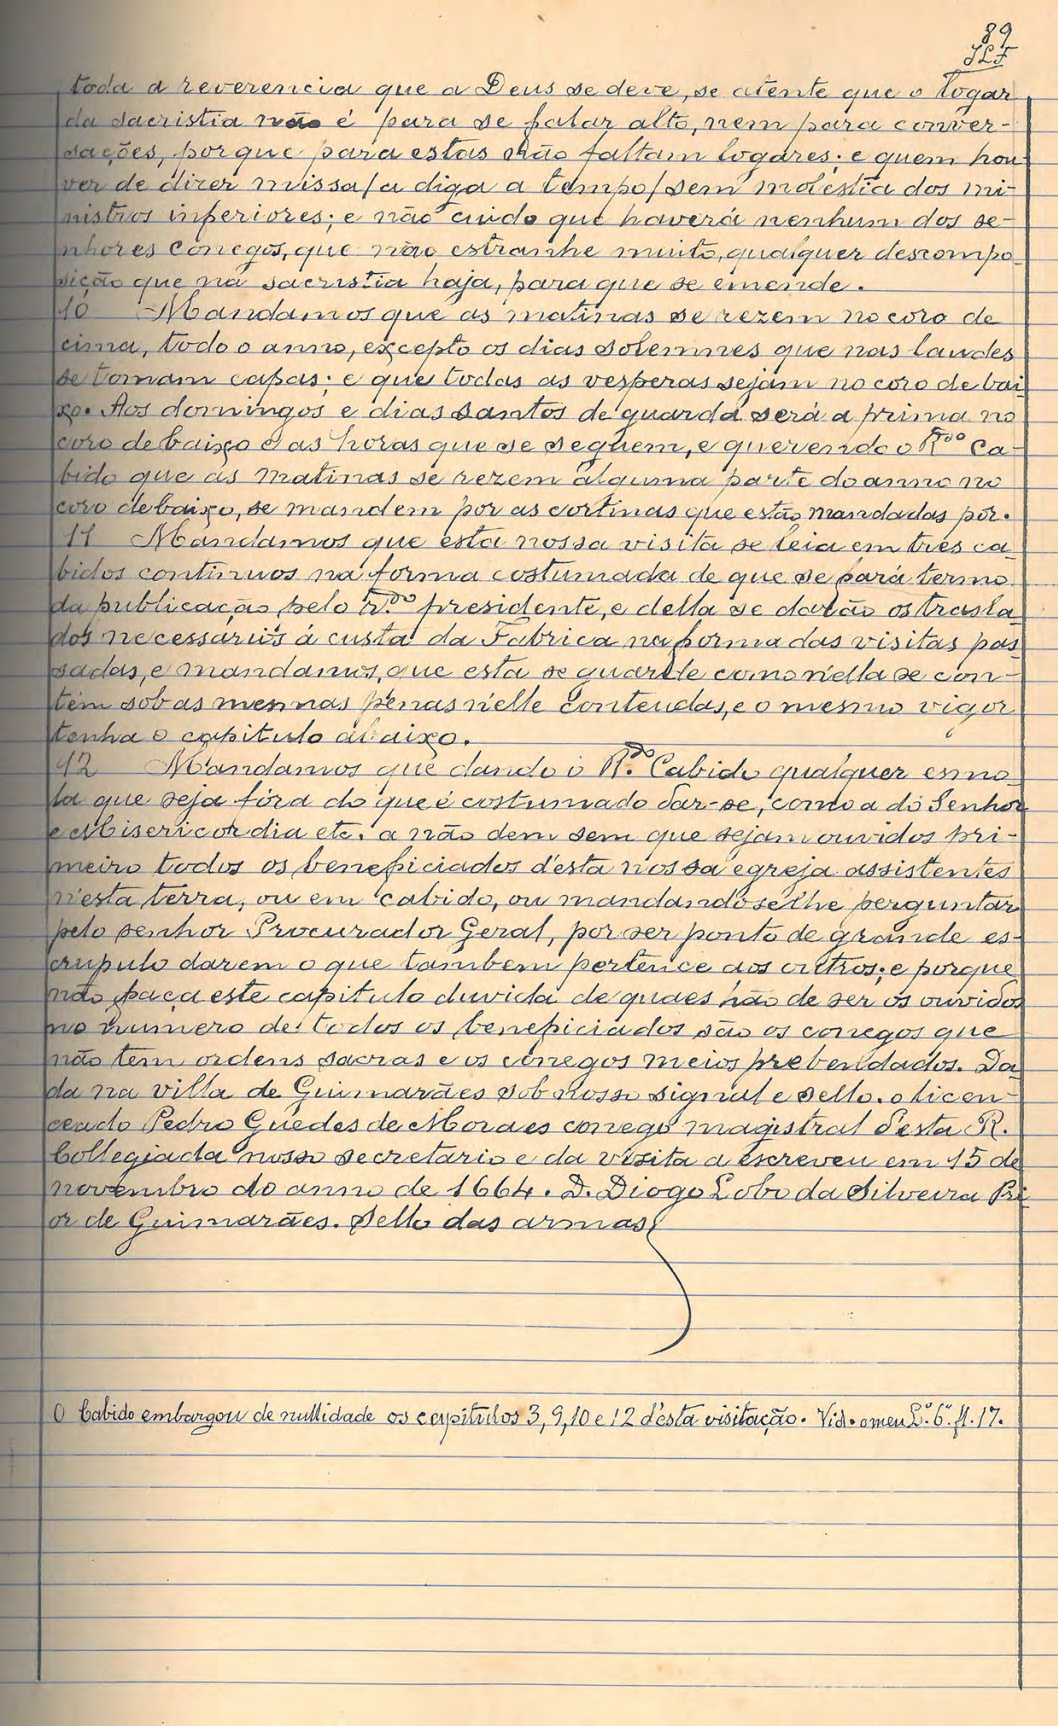 89
JLF
toda a reverencia que a Deus se deve, se atente que o logar
da sacristia não é para se falar alto, nem para conver-
sações, porque para estas não faltam logares; e quem hou-
ver de dizer missa/a diga a tempo/sem molestia dos mi-
nistros inferiores; e não cuido que haverá nenhum dos se-
nhores conegos, que não estranhe muito, qualquer descompo-
sição que na sacristia haja, para que se emende.
10 Mandamos que as matinas se rezem no coro de
cima, todo o anno, excepto os dias solemnes que nas laudes
se tomam capas; e que todas as vesperas sejam no coro de bai
xo. Aos domingos e dias santos de guarda será a prima no
coro de baixo e as horas que se seguem, e querendo o R.do Ca-
bido que as matinas se rezem alguma parte do anno no
coro debaixo, se mandem pôr as cortinas que estão mandadas pôr.
11 Mandamos que esta nossa visita se leia em tres ca-
bidos continuos na forma costumada de que se fará termo
da publicação pelo R.do presidente, e della se darão os trasla-
dos necessarios á custa da Fabrica na forma das visitas pas-
sadas, e mandamos, que esta se guarde como n'ella se con-
têm sob as mesmas penas n'elle conteudas, e o mesmo vigor
tenha o capitulo abaixo.
12 Mandamos que dando o R.do Cabido qualquer esmo-
la que seja fóra do que é costumado dar-se, como a do Senhor
e Misericordia etc. a não dem sem que sejam ouvidos pri-
meiro todos os beneficiados d'esta nossa egreja assistentes
n'esta terra, ou em cabido, ou mandando-se lhe perguntar
pelo senhor Procurador Geral, por ser ponto de grande es-
crupulo darem o que tambem pertence aos outros; e porque
não faça este capitulo duvida de quaes hão de ser os ouvidos
no numero de todos os beneficiados são os conegos que
não têm ordens sacras e os conegos meios prebendados. Da-
da na villa de Guimarães sob nosso signal e sello. o licen-
ceado Pedro Guedes de Moraes conego magistral d'esta R.
Collegiada nosso secretario e da visita a escreveu em 15 de
novembro do anno de 1664. D. Diogo Lobo da Silveira Pri-
or de Guimarães. Sello das armas
O Cabido embargou de nullidade os capitulos 3, 9, 10 e 12 d'esta visitação. Vid. o meu L.º 6.º fl. 17.